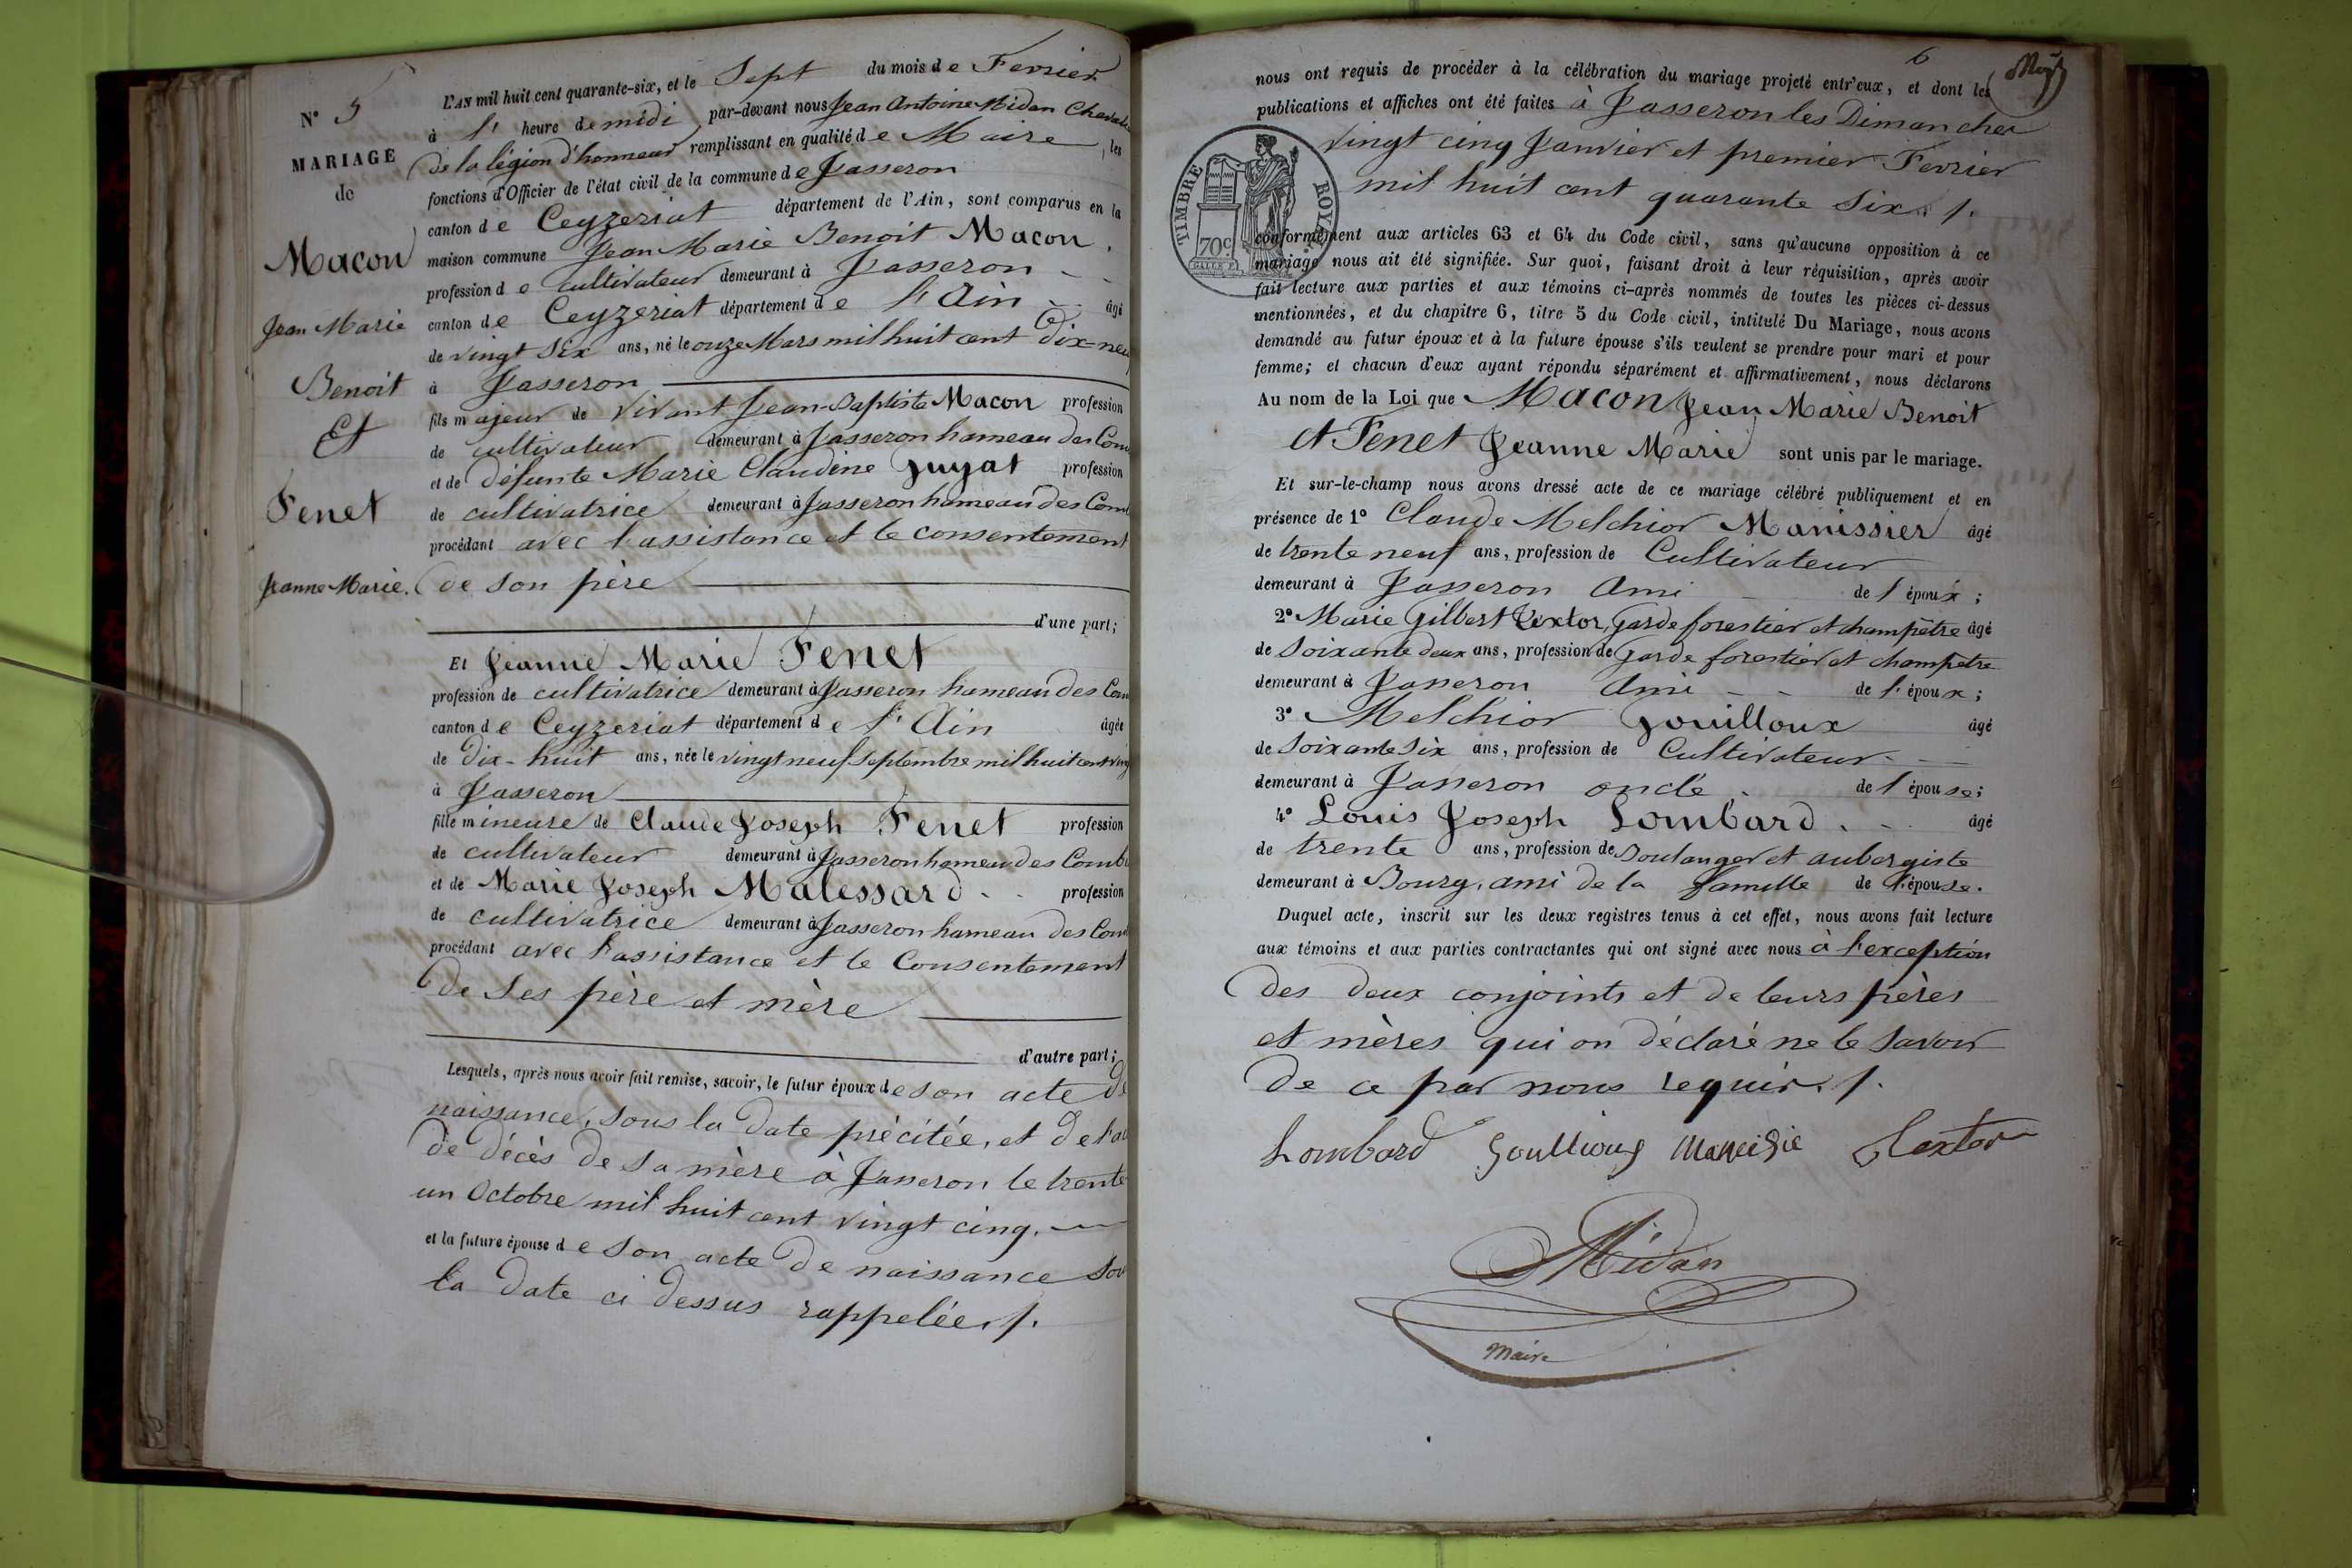 N° 5
MARIAGE
de
Macon
Jean Marie
Benoit
Et
Fenet
Jeanne Marie.
L'AN mil huit cent quarante-six, et le Sept du mois de Fevrier
à l' heure de midi, par-devant nous Jean Antoine Midan Chevalie
de la légion d'honneur remplissant en qualité de Maire, les
fonctions d'Officier de l'état civil de la commune de Jasseron
canton de Ceyzeriat département de l'Ain, sont comparus en la
maison commune Jean Marie Benoit Macon.
profession de cultivateur demeurant à Jasseron
canton de Ceyzeriat département de l'Ain âgé
de vingt Six ans, né le onze Mars mil huit cent dix-neuf
à Jasseron
fils majeur de vivant Jean-Baptiste Macon profession
de cultivateur demeurant à Jasseron hameau des Com
et de défunte Marie Claudine Guyat profession
de cultivatrice demeurant à Jasseron hameau des Com
procédant avec l'assistance et le consentement
de son père
d'une part;
Et Jeanne Marie Fenet
profession de cultivatrice demeurant à Jasseron hameau des Com
canton de Ceyzeriat département de l'Ain âgée
de dix-huit ans, née le vingt neuf Septembre mil huit cent ving
à Jasseron
fille mineure de Claude Joseph Fenet profession
de cultivateur demeurant à Jasseron hameau des Comb
et de Marie Joseph Malessard profession
de cultivatrice demeurant à Jasseron hameau des Com
procédant avec l'assistance et le Consentement
de Ses père et mère
d'autre part;
Lesquels, après nous avoir fait remise, savoir, le futur époux de son acte de
naissance, sous la date précitée, et de l'ac
de décès de sa mère à Jasseron le trente
un Octobre mil huit cent vingt cinq.
et la future épouse de son acte de naissance sou
la date ci dessus rappelée./.
6
nous ont requis de procéder à la célébration du mariage projeté entr'eux, et dont les
publications et affiches ont été faites à Jasseron les Dimanches
vingt cinq Janvier et premier Fevrier
mil huit cent quarante six./.
TIMBRE ROYAL
70c.
conformément aux articles 63 et 64 du Code civil, sans qu'aucune opposition à ce
mariage nous ait été signifiée. Sur quoi, faisant droit à leur réquisition, après avoir
fait lecture aux parties et aux témoins ci-après nommés de toutes les pièces ci-dessus
mentionnées, et du chapitre 6, titre 5 du Code civil, intitulé Du Mariage, nous avons
demandé au futur époux et à la future épouse s'ils veulent se prendre pour mari et pour
femme; et chacun d'eux ayant répondu séparément et affirmativement, nous déclarons
Au nom de la Loi que Macon Jean Marie Benoit
et Fenet Jeanne Marie sont unis par le mariage.
Et sur-le-champ nous avons dressé acte de ce mariage célébré publiquement et en
présence de 1° Claude Melchior Manissier âgé
de trente neuf ans, profession de Cultivateur
demeurant à Jasseron Ami de l'époux;
2° Marie Gilbert Textor, Garde forestier et champêtre âgé
de Soixante deux ans, profession de Garde forestier et champêtre
demeurant à Jasseron Ami de l'époux;
3° Melchior Gouilloux âgé
de Soixante Six ans, profession de Cultivateur
demeurant à Jasseron oncle de l'épouse;
4° Louis Joseph Lombard. âgé
de trente ans, profession de Boulanger et aubergiste
demeurant à Bourg, ami de la famille de l'épouse.
Duquel acte, inscrit sur les deux registres tenus à cet effet, nous avons fait lecture
aux témoins et aux parties contractantes qui ont signé avec nous à l'exception
des deux conjoints et de leurs pères
et mères qui on déclaré ne le savoir
de ce par nous requis./.
Lombard Goullioux Manisié Textor
Midan
Maire